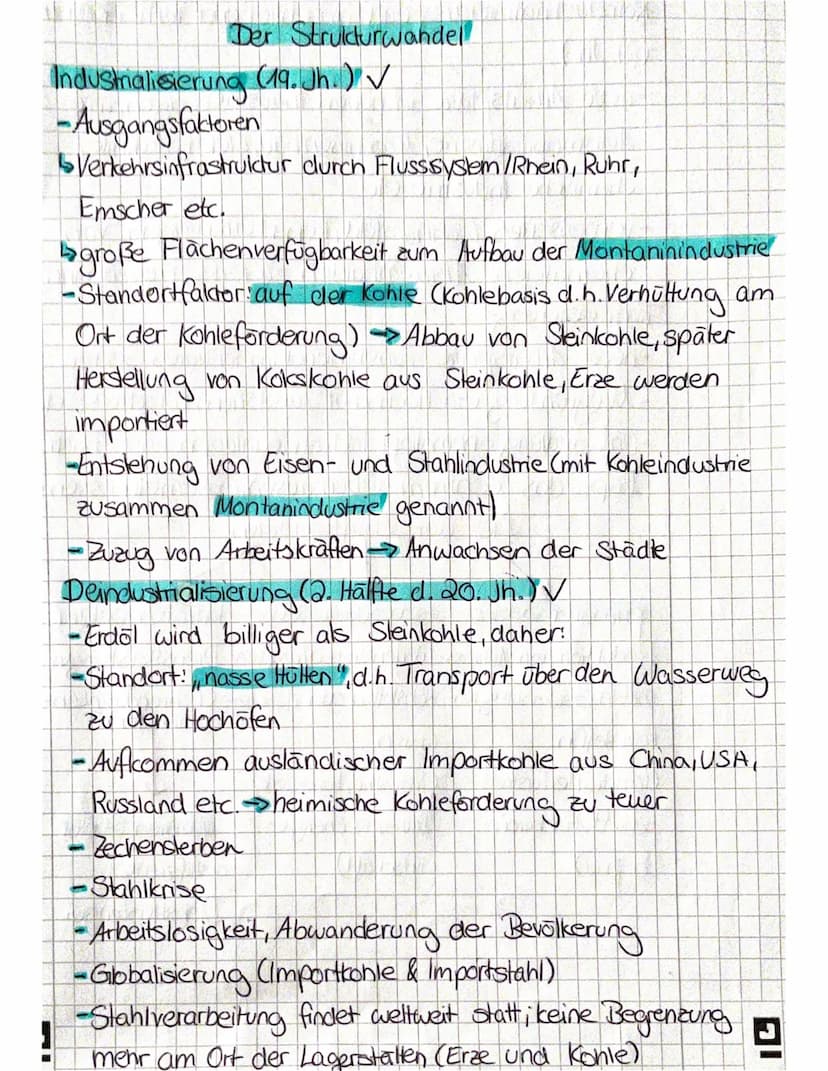 Der Strukturwandel
Industrialisierung (19. Jh.) ✓
- Ausgangsfaktoren
↳ Verkehrsinfrastruktur durch Flusssystem/Rhein, Ruhr,
Emscher etc.
↳ große Flächenverfügbarkeit zum Aufbau der Montaninindustrie
- Standortfaktor: auf der Kohle (Kohlebasis d.h. Verhüttung am
Ort der Kohleförderung) → Abbau von Steinkohle, später
Herstellung von Kokskohle aus Steinkohle, Erze werden
importiert
- Entstehung von Eisen- und Stahlindustrie (mit Kohleindustrie
zusammen Montanindustrie genannt)
- Zuzug von Arbeitskräften → Anwachsen der Städte
Deindustrialisierung (2. Hälfte d. 20. Jh.) ✓
- Erdöl wird billiger als Steinkohle, daher:
- Standort: „nasse Hütten", d.h. Transport über den Wasserweg
zu den Hochöfen
- Aufkommen ausländischer Importkohle aus China, USA,
Russland etc. → heimische Kohleförderung zu teuer
- Zechensterben
- Stahlkrise
- Arbeitslosigkeit, Abwanderung der Bevölkerung
- Globalisierung (Importkohle & Importstahl)
- Stahlverarbeitung findet weltweit statt; keine Begrenzung
mehr am Ort der Lagerstätten (Erze und Kohle)